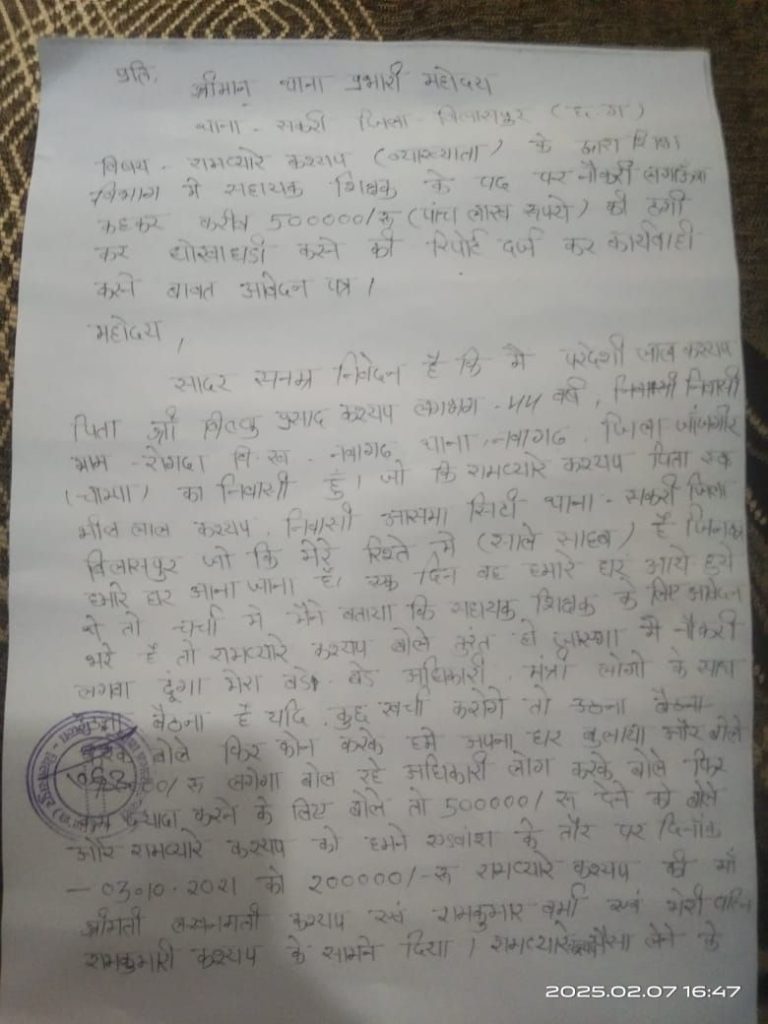 प्रति,
श्रीमान् थाना प्रभारी महोदय
थाना - सकरी जिला - बिलासपुर (छ.ग.)
विषय - रामप्यारे कश्यप (व्याख्याता) के द्वारा शिक्षा
विभाग में सहायक शिक्षक के पद पर नौकरी लगाऊंगा
कहकर करीब 500000/रु (पांच लाख रूपये) की ठगी
कर धोखाधडी करने की रिपोर्ट दर्ज कर कार्यवाही
करने बावत आवेदन पत्र ।
महोदय,
सादर सनम्र निवेदन है कि मै परदेशी लाल कश्यप
पिता श्री प्रसाद कश्यप लगभग - 44 वर्ष, निवासी
ग्राम - रोगदा वि.ख. नवागढ थाना नवागढ, जिला जांजगीर
(चाम्पा) का निवासी हुँ। जो कि रामप्यारे कश्यप पिता स्व
लाल कश्यप, निवासी आसमा सिटी थाना - सकरी जिला
बिलासपुर जो कि मेरे रिश्ते में (साले साहब) है जिनका
हमारे घर आना जाना है। एक दिन वह हमारे घर आये हुये
थे तो चर्चा मे मैने बताया कि सहायक शिक्षक के लिए आवेदन
भरे है तो रामप्यारे कश्यप बोले तुरंत हो जायेगा मै नौकरी
लगवा दूंगा मेरा बडे बडे अधिकारी, मंत्री लोगो के साथ
उठना बैठना है यदि कुछ खर्चा करोगे तो उठना बैठना
करके बोले फिर फोन करके हमे अपना घर बुलाया और बोले
/रु लगेगा बोल रहे अधिकारी लोग करके बोले फिर
कम ज्यादा करने के लिए बोले तो 500000/रु देने को बोले
और रामप्यारे कश्यप को हमने एडवांश के तौर पर दिनांक
- 03.10.2021 को 200000/-रु रामप्यारे कश्यप की माँ
श्रीमती लखनमती कश्यप एवं रामकुमार वर्मा एवं मेरी बहिन
रामकुमारी कश्यप के सामने दिया। रामप्यारे पैसा लेने के
2025.02.07 16:47